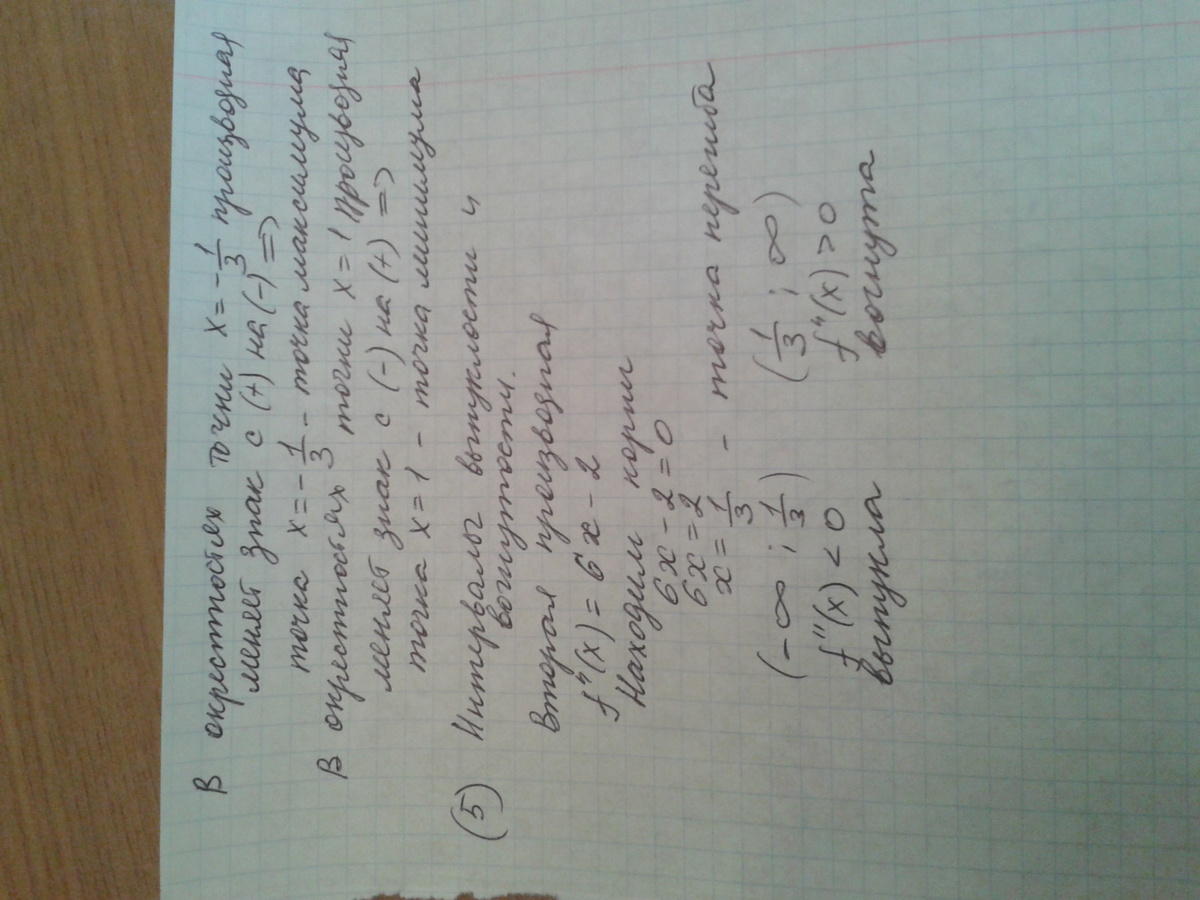 В окрестностях точки x = -1/3 производная
меняет знак с (+) на (-) =>
точка x = -1/3 - точка максимума
В окрестностях точки x = 1 производная
меняет знак с (-) на (+) =>
точка x = 1 - точка минимума
(5) Интервалы выпуклости и
вогнутости.
Вторая производная
f"(x) = 6x - 2
Находим корни
6x - 2 = 0
6x = 2
x = 1/3 - точка перегиба
(-∞ ; 1/3) (1/3 ; ∞)
f"(x) < 0 f"(x) > 0
выпукла вогнута